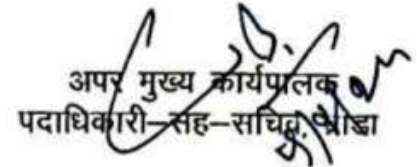 अपर मुख्य कार्यपालक
पदाधिकारी–सह–सचिव,